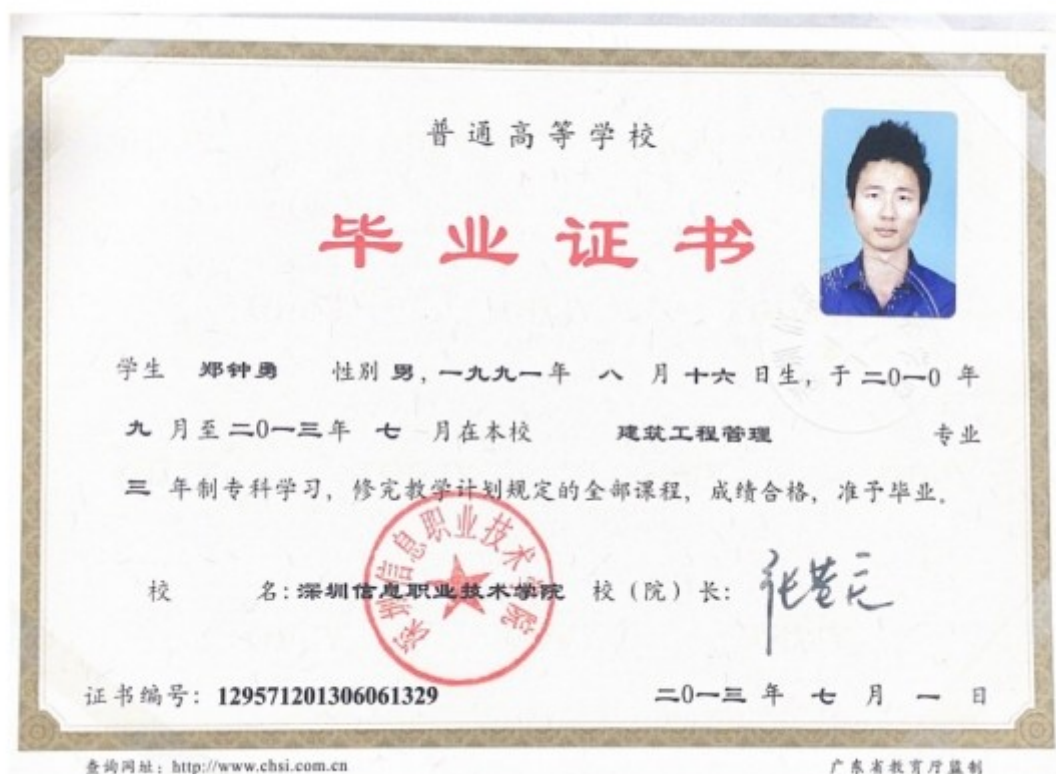 普通高等学校
毕业证书
学生 郑钟勇 性别 男，一九九一年 八 月 十六 日生，于 二0一0 年
九 月至 二0一三年 七 月在本校 建筑工程管理 专业
三 年制专科学习，修完教学计划规定的全部课程，成绩合格，准予毕业。
深圳信息职业技术学院
校 名：深圳信息职业技术学院 校（院）长：
证书编号：129571201306061329 二0一三 年 七 月 一 日
查询网址：http://www.chsi.com.cn 广东省教育厅监制